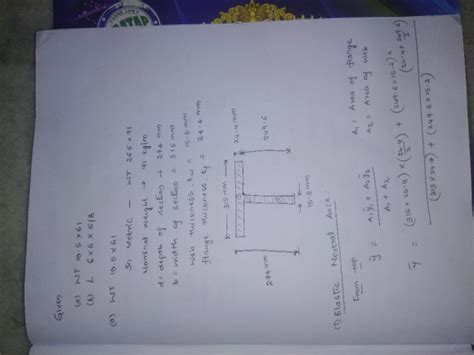 Given
(a) WT 10.5 x 61
(b) L 6 x 6 x 5/8
(a) WT 10.5 x 61
In Metric - WT 265 x 91
Nominal weight → 91 kg/m
d = depth of section → 274 mm
b = width of section = 315 mm
Web thickness, tw = 15.2 mm
flange thickness, tf = 24.4 mm
315 mm
24.4 mm
249.6
15.2 mm
274 mm
(1) Elastic Neutral Axis:
From top
ȳ = A₁ȳ₁ + A₂ȳ₂ / A₁ + A₂
A₁ = Area of flange
A₂ = Area of web
ȳ = (315 x 24.4) x (24.4/2) + (249.6 x 15.2) x (24.4 + 249.6/2) / (315 x 24.4) + (249.6 x 15.2)